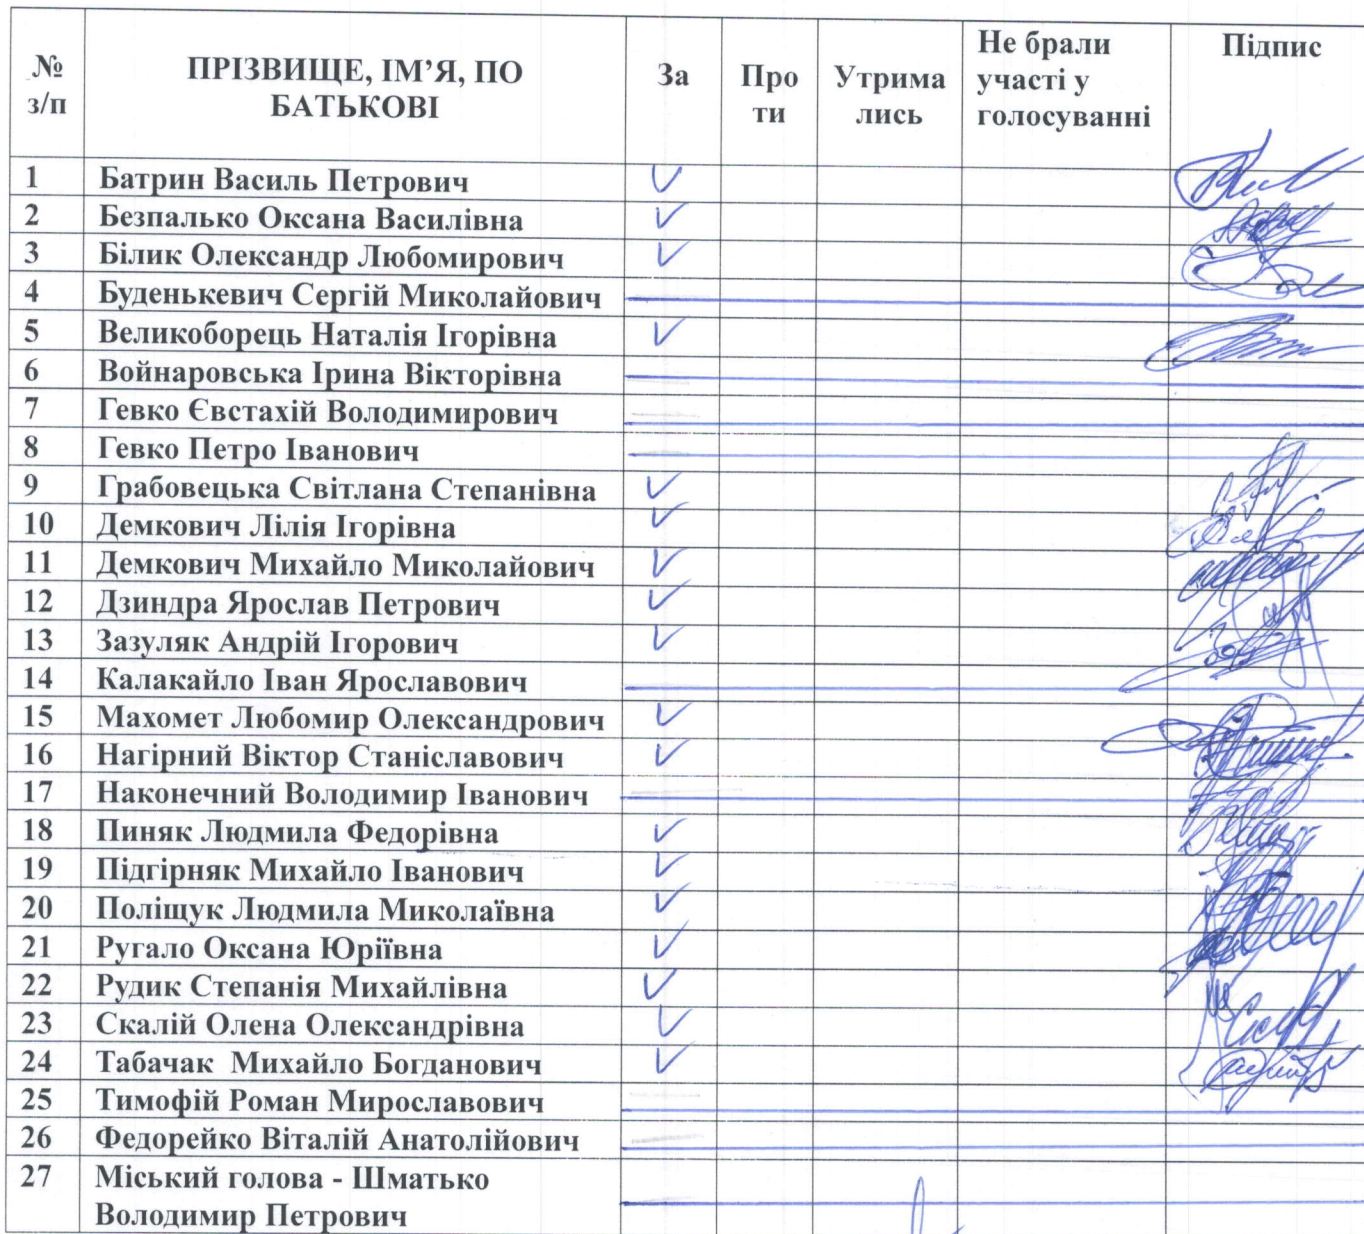 № з/п ПРІЗВИЩЕ, ІМ’Я, ПО БАТЬКОВІ За Проти Утримались Не брали участі у голосуванні Підпис
1 Батрин Василь Петрович ✓
2 Безпалько Оксана Василівна ✓
3 Білик Олександр Любомирович ✓
4 Буденькевич Сергій Миколайович
5 Великоборець Наталія Ігорівна ✓
6 Войнаровська Ірина Вікторівна
7 Гевко Євстахій Володимирович
8 Гевко Петро Іванович
9 Грабовецька Світлана Степанівна ✓
10 Демкович Лілія Ігорівна ✓
11 Демкович Михайло Миколайович ✓
12 Дзиндра Ярослав Петрович ✓
13 Зазуляк Андрій Ігорович ✓
14 Калакайло Іван Ярославович
15 Махомет Любомир Олександрович ✓
16 Нагірний Віктор Станіславович ✓
17 Наконечний Володимир Іванович
18 Пиняк Людмила Федорівна ✓
19 Підгірняк Михайло Іванович ✓
20 Поліщук Людмила Миколаївна ✓
21 Ругало Оксана Юріївна ✓
22 Рудик Степанія Михайлівна ✓
23 Скалій Олена Олександрівна ✓
24 Табачак Михайло Богданович ✓
25 Тимофій Роман Мирославович
26 Федорейко Віталій Анатолійович
27 Міський голова - Шматько
Володимир Петрович